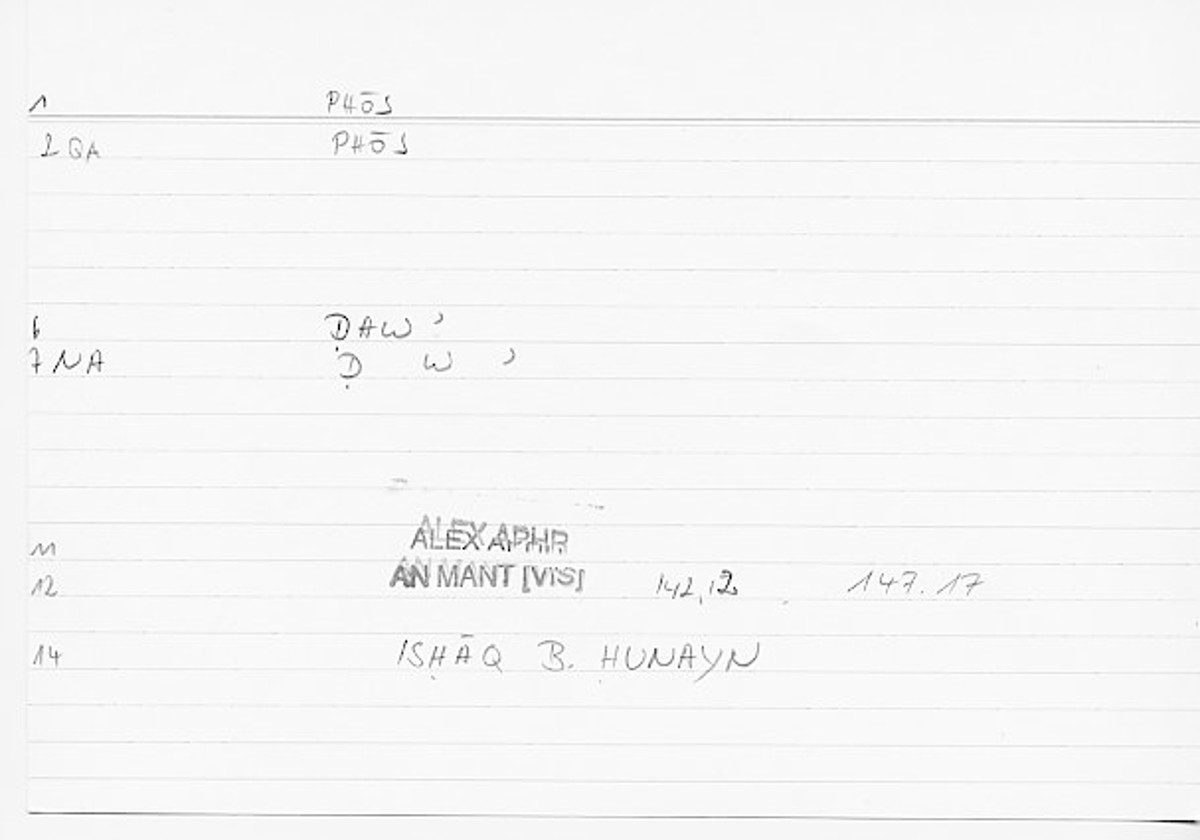 1 PHŌS
2 QA PHŌS
6 ḌAWʾ
7 NA Ḍ W ʾ
11 ALEX APHR
12 AN MANT [VIS] 142,12 147.17
14 ISḤĀQ B. ḤUNAYN